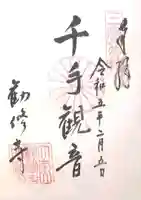 奉拝
令和五年二月五日
千手観音
勧修寺